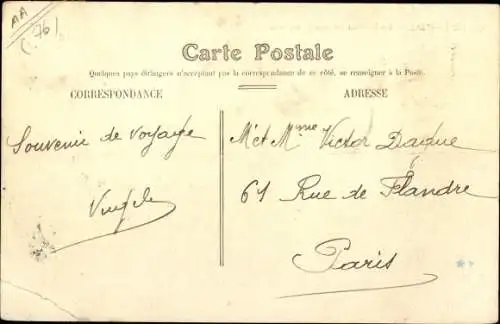 AA
(76)
Carte Postale
Quelques pays étrangers n'acceptant pas la correspondance de ce côté, se renseigner à la Poste.
CORRESPONDANCE
Souvenir de voyage
ADRESSE
M et Mme Victor
61 Rue de Flandre
Paris